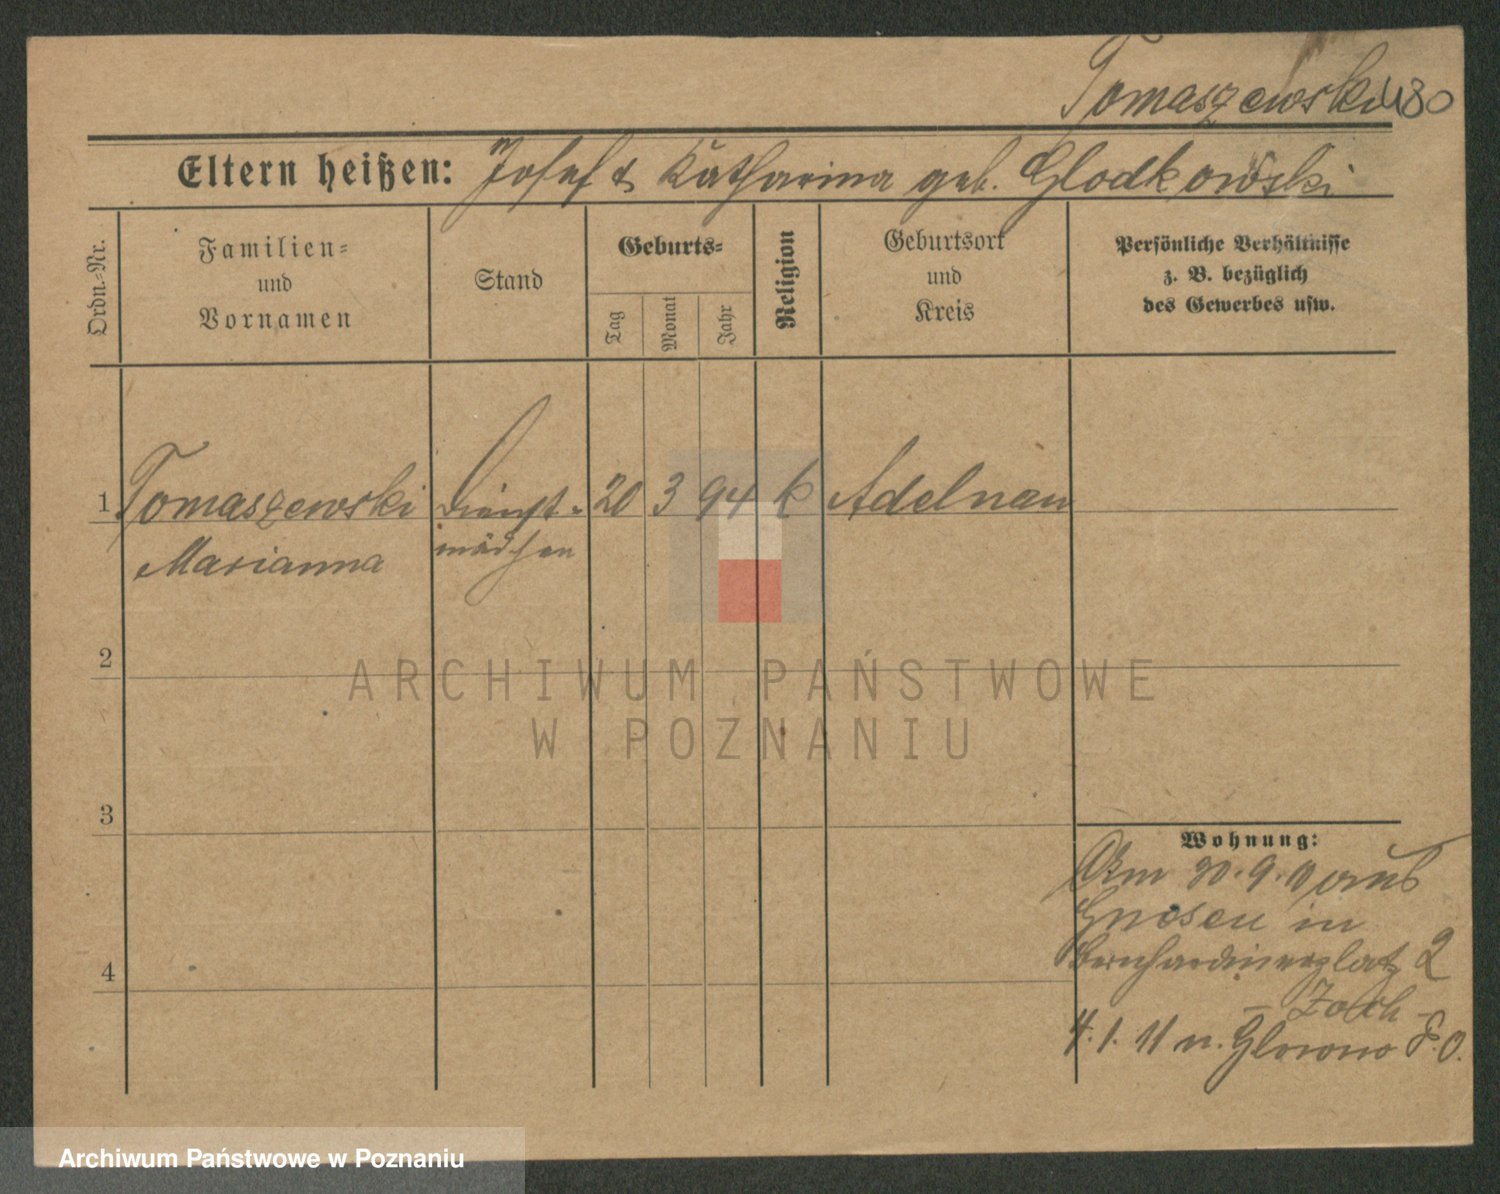 Tomaszewski 480
Eltern heißen: Josef & Katharina geb. Glodkowski
Ordn.-Nr.
Familien-
und
Vornamen
Stand
Geburts-
Tag
Monat
Jahr
Religion
Geburtsort
und
Kreis
Persönliche Verhältnisse
z. B. bezüglich
des Gewerbes usw.
1 Tomaszewski Dienst- 20 3 94 k Adelnau
Marianna mädchen
2
ARCHIWUM PAŃSTWOWE
W POZNANIU
3
Wohnung:
Am 30.9.10 aus
Gnesen in
Bernhardinerplatz 2
4
– Zoch –
4.1.11 n. Glowno P.O.
Archiwum Państwowe w Poznaniu